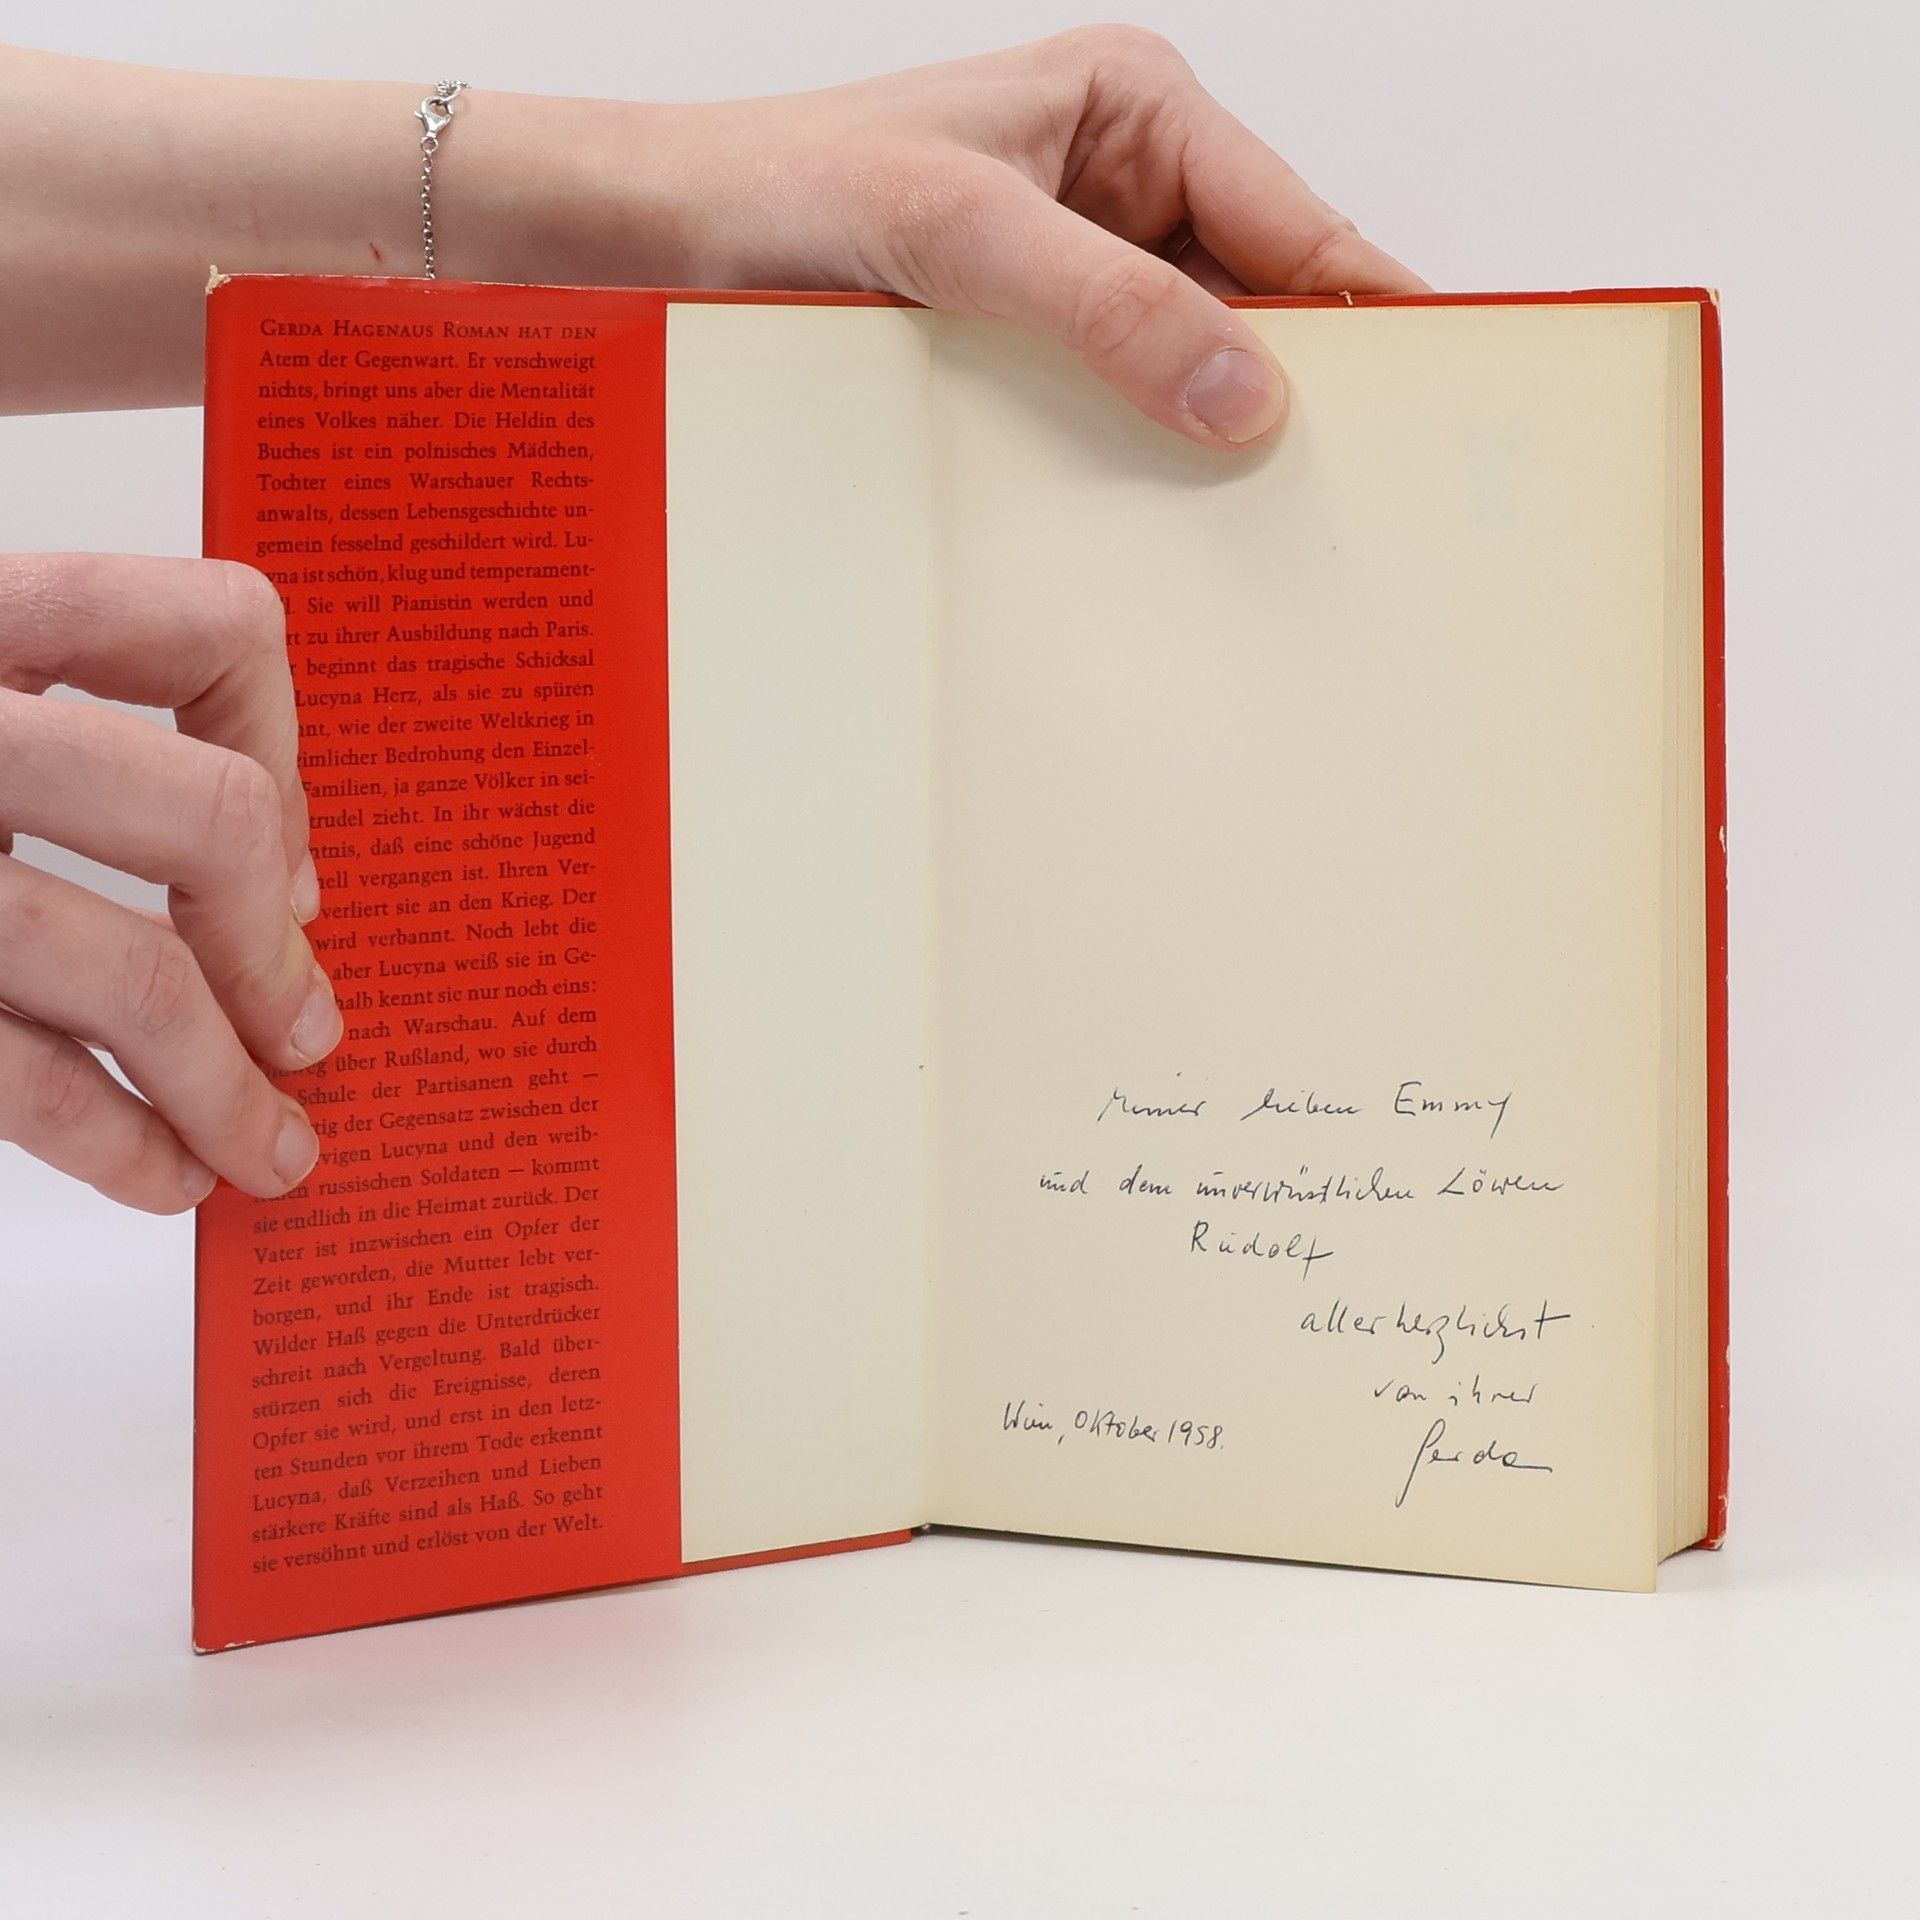 GERDA HAGENAUS ROMAN HAT DEN
Atem der Gegenwart. Er verschweigt
nichts, bringt uns aber die Mentalität
eines Volkes näher. Die Heldin des
Buches ist ein polnisches Mädchen,
Tochter eines Warschauer Rechts-
anwalts, dessen Lebensgeschichte un-
gemein fesselnd geschildert wird. Lu-
yna ist schön, klug und temperament-
l. Sie will Pianistin werden und
rt zu ihrer Ausbildung nach Paris.
r beginnt das tragische Schicksal
Lucyna Herz, als sie zu spüren
nnt, wie der zweite Weltkrieg in
eimlicher Bedrohung den Einzel-
Familien, ja ganze Völker in sei-
trudel zieht. In ihr wächst die
ntnis, daß eine schöne Jugend
nell vergangen ist. Ihren Ver-
verliert sie an den Krieg. Der
wird verbannt. Noch lebt die
aber Lucyna weiß sie in Ge-
halb kennt sie nur noch eins:
nach Warschau. Auf dem
weg über Rußland, wo sie durch
Schule der Partisanen geht –
tig der Gegensatz zwischen der
rvigen Lucyna und den weib-
russischen Soldaten – kommt
sie endlich in die Heimat zurück. Der
Vater ist inzwischen ein Opfer der
Zeit geworden, die Mutter lebt ver-
borgen, und ihr Ende ist tragisch.
Wilder Haß gegen die Unterdrücker
schreit nach Vergeltung. Bald über-
stürzen sich die Ereignisse, deren
Opfer sie wird, und erst in den letz-
ten Stunden vor ihrem Tode erkennt
Lucyna, daß Verzeihen und Lieben
stärkere Kräfte sind als Haß. So geht
sie versöhnt und erlöst von der Welt.
Meiner lieben Emmy
und dem unverwüstlichen Löwen
Rudolf
allerherzlichst
von ihrer
Gerda
Wien, Oktober 1958.